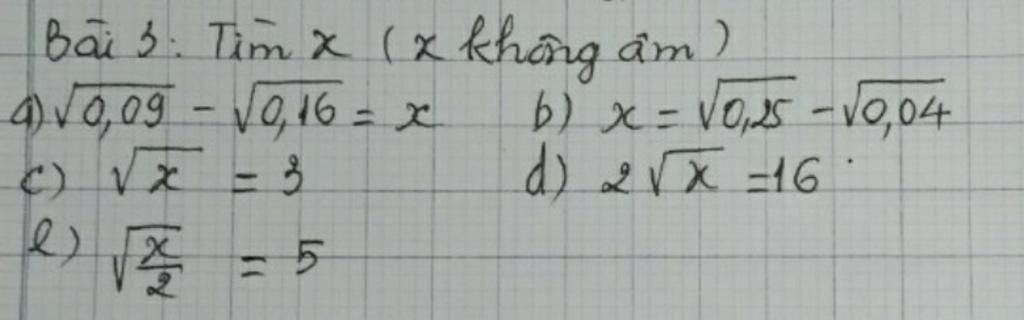 Bài 3: Tìm x (x không âm)
a) √0,09 - √0,16 = x b) x = √0,25 - √0,04
c) √x = 3 d) 2√x = 16
e) √(x/2) = 5